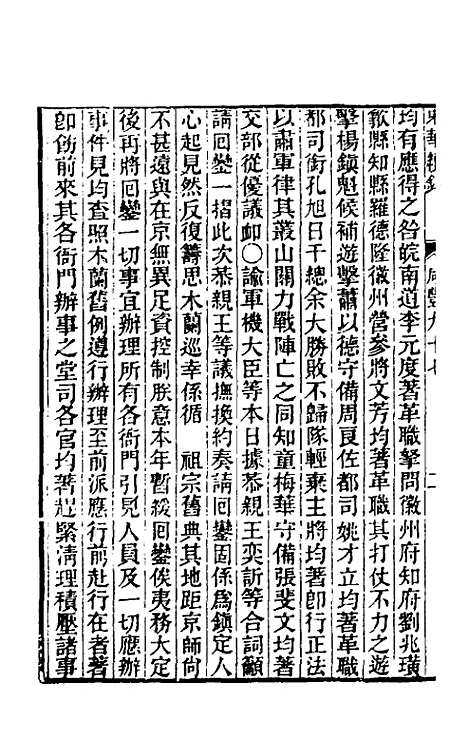 東華續錄　咸豐九十七　二
均有應得之咎皖南道李元度著革職拏問徽州府知府劉兆璜
歙縣知縣羅德隆徽州營參將文芳均著革職其打仗不力之遊
擊楊鎮魁候補遊擊蕭以德守備周良佐都司姚才立均著革職
都司銜孔旭日千總余大勝敗不歸隊輕棄主將均著卽行正法
以肅軍律其叢山關力戰陣亡之同知童梅華守備張斐文均著
交部從優議卹○諭軍機大臣等本日據恭親王奕訢等合詞籲
請回鑾一摺此次恭親王等議撫換約奏請回鑾固係爲鎮定人
心起見然反復籌思木蘭巡幸係循　祖宗舊典其地距京師尙
不甚遠與在京無異足資控制朕意本年暫緩回鑾俟夷務大定
後再將回鑾一切事宜辦理所有各衙門引見人員及一切應辦
事件見均查照木蘭舊例遵行辦理至前派應行前赴行在者著
卽飭前來其各衙門辦事之堂司各官均著趕緊淸理積壓諸事